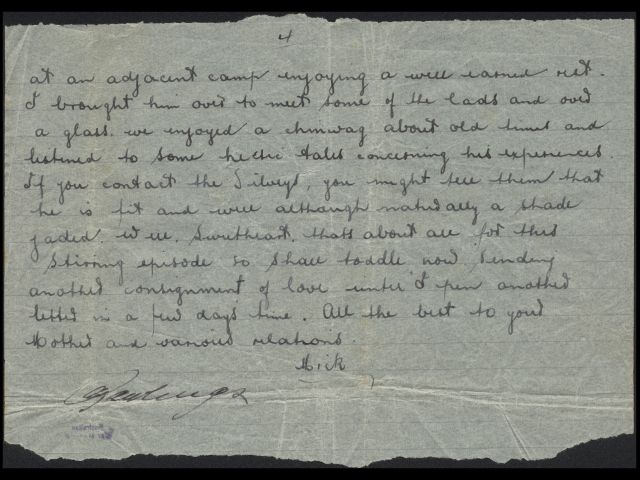 4
at an adjacent camp enjoying a well earned rest.
I brought him over to meet some of the lads and over
a glass, we enjoyed a chinwag about old times and
listened to some hectic tales concerning his experiences.
If you contact the Silveys, you might tell them that
he is fit and well although naturally a shade
jaded. Well, Sweetheart, thats about all for this
stirring episode so shall toddle now sending
another consignment of love until I pen another
letter in a few days time. All the best to your
Mother and various relations.
Mick